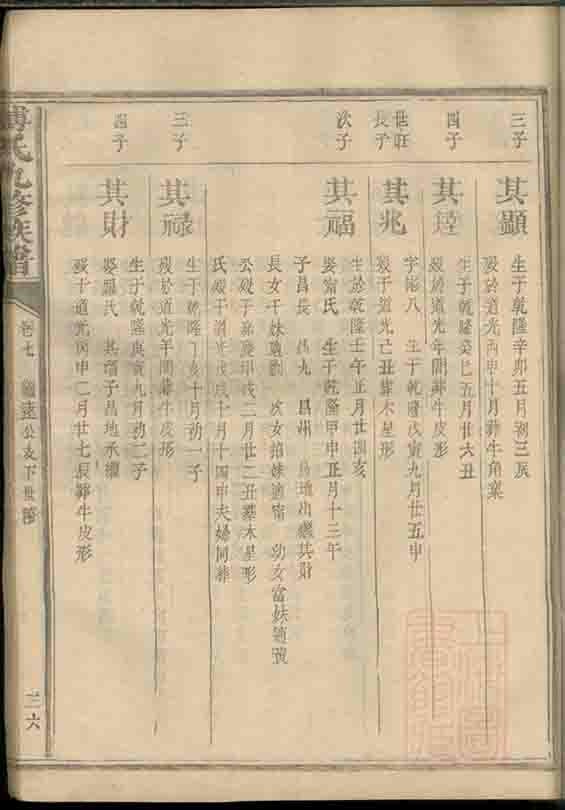 三子
其顯
生于乾隆辛卯五月初三辰
歿於道光丙申十月葬牛角窠
四子
其達
生於乾隆癸巳五月廿六丑
歿於道光年間葬牛皮形
世旺
長子
其兆
字 八 生于乾隆戊寅九月廿五申
歿于道光己丑葬木星形
次子
其福
生於乾隆壬午正月廿四亥
娶甯氏 生于乾隆甲申正月十三午
子昌長 昌九 昌州 昌地出繼其財
長女干妹適劉 次女招妹適甯 幼女富妹適
公歿于嘉慶甲戌二月廿二丑葬木星形
氏歿于 戊戌十月十四申夫婦同葬
三子
其祿
生于乾隆丁亥十月初一子
歿於道光年間葬牛皮形
四子
其財
生于乾隆庚寅九月初二子
娶羅氏 其福子昌地承繼
歿于道光丙申二月廿七辰葬牛皮形
傅氏九修族譜
卷七
遠公支下世
三六
上海圖書館藏